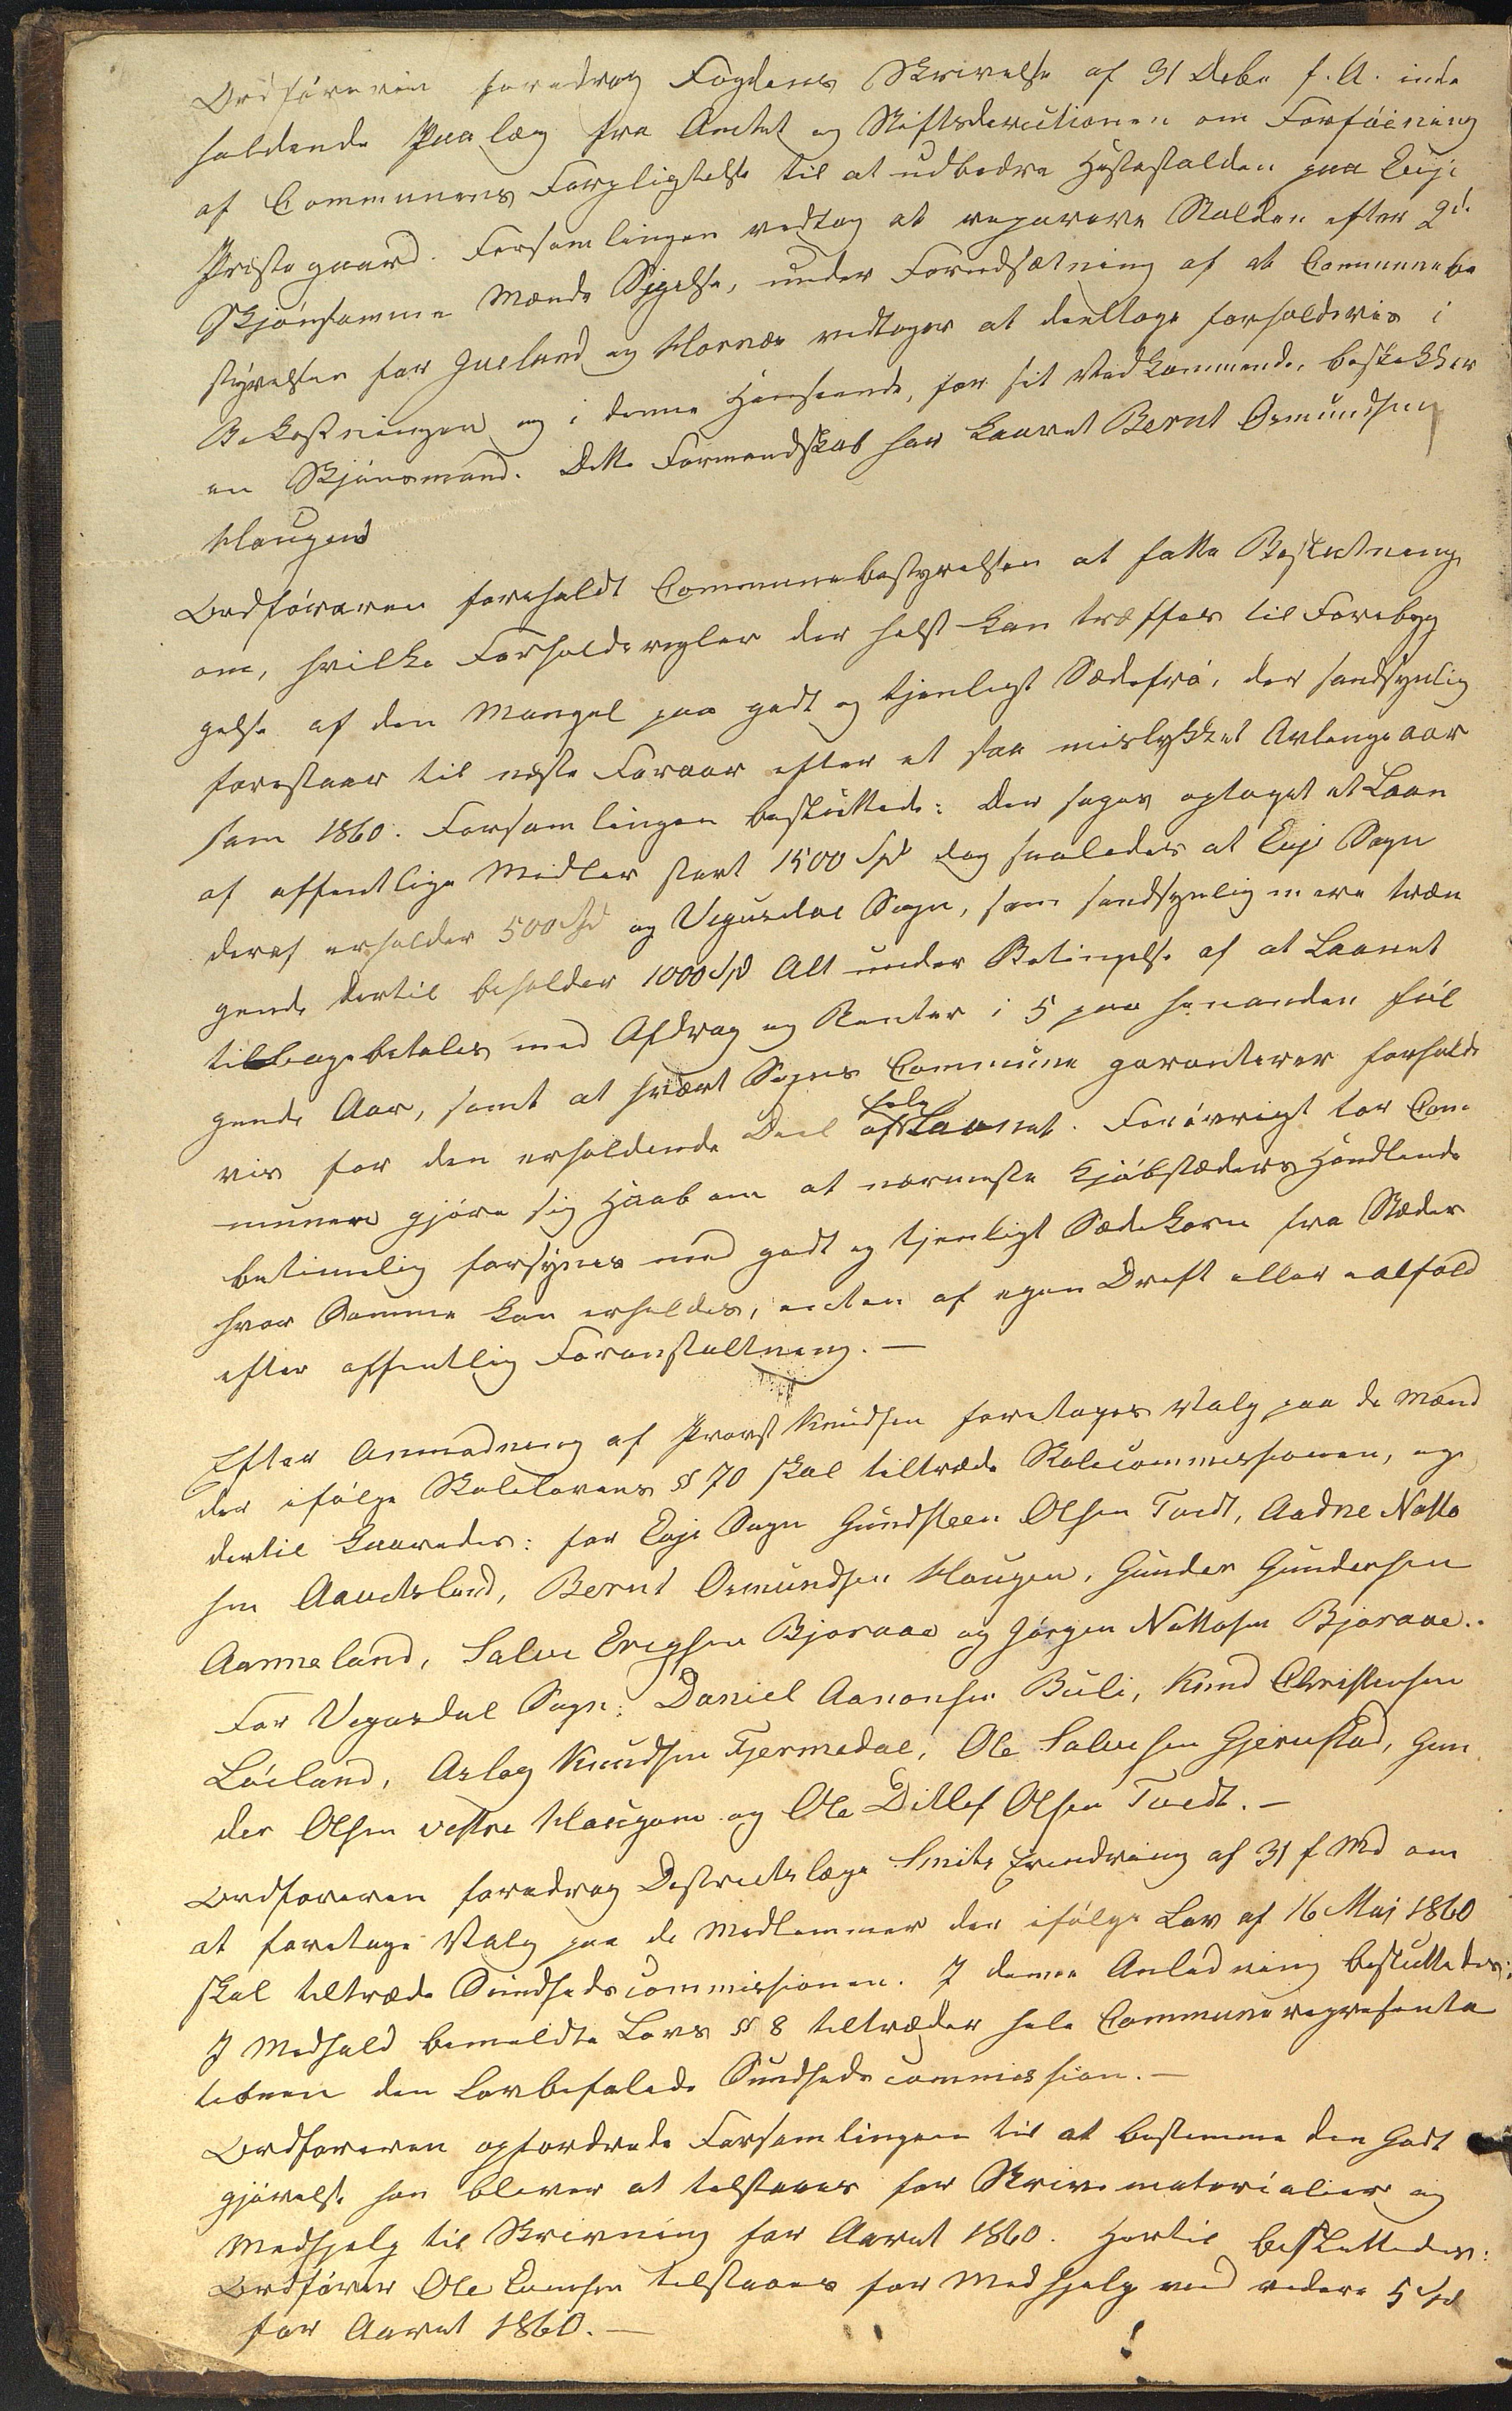 Ordføreren foredrog Fogdens Skrivelse af 31 Debr f. A. inde
holdende Paalæg fra Amtet og Stiftsdirectionen om Forføining
af Communens Forpligtelse til at udbedre Hestestalden paa Evje
Præstegaard. Forsamlingen vedtog at reparere Stalden efter 2de
Skjønsomme Mænds Sigelse, under Forudsætning af at Communebe
styrelsen for Iveland og Hornæs vedtager at deeltage forholdsvis i
Bekostningen og i denne Henseende, for sit Vedkommende, beskikker
en Skjønsmand. Dette Formandskab har kaaret Bernt Osmundsen
Haugen
Ordføreren foreholdt Communebestyrelsen at fatte Beslutning
om, hvilke Forholdsregler der helst kan træffes til Forebyg
gelse af den Mangel paa godt og tjenligt Sædefrø, der sandsynlig
forestaaer til næste Foraar efter et saa mislykket Avlingsaar
som 1860. Forsamlingen besluttede: Der søges optaget et Laan
af offentlige Midler stort 1500 Spd dog saaledes at Evje Sogn
deraf erholder 500 Spd og Vegusdal Sogn, som sandsynlig mere træn
gende dertil beholder 1000 Spd Alt under Betingelse af at Laanet
tilbagebetales med Afdrag og Renter i 5 paa hinanden føl
gende Aar, samt at hvært Sogns Commune garanterer forholds
vis for den erholdende Deel af Laanet. Forøvrigt tør Com
munen gjøre sig Haab om at nærmeste Kjøbstæders Handlende
betimelig forsynes med godt og tjenligt Sædekorn fra Stæder
hvor Samme kan erholdes, enten af egen Drift eller ialfald
efter offentlig Foranstaltning. —
Efter Anmodning af Provst Knudsen foretages Valg paa de Mænd
der ifølge Skolelovens § 70 skal tiltræde Skolecommissionen, og
dertil kaaredes: for Evje Sogn Gundsteen Olsen Tvedt, Aadne Notto
sen Aavitsland, Bernt Osmundsen Haugen, Gunder Gundersen
Aanneland, Salve Eregsen Bjoraae og Jørgen Nottosen Bjoraae.
For Vegusdal Sogn: Daniel Aanonsen Buli, Knud Christensen
Løiland, Aslag Knudsen Tjermedal, Ole Salvesen Gjerustad, Gun
der Olsen vestre Haugane og Ole Ditlef Olsen Tvedt. —
Ordføreren foredrog Districtslæge Smits Erindring af 31 f Md om
at foretage Valg paa de Medlemmer der ifølge Lov af 16 Maj 1860
skal tiltræde Sundhedscommissionen. I denne Anledning besluttedes:
I Medhold bemeldte Lovs § 8 tiltræder hele Communerepræsenta
tionen den Lovbefalede Sundhedscommission. —
Ordføreren opfordrede Forsamlingen til at bestemme den Godt
gjørelse han bliver at tilstaaes for Skrivematerialier og
Medhjelp til Skrivning for Aaret 1860. Hertil besluttedes:
Ordfører Ole tilstaaes for Medhjelp med videre 5 Spd
for Aaret 1860. —